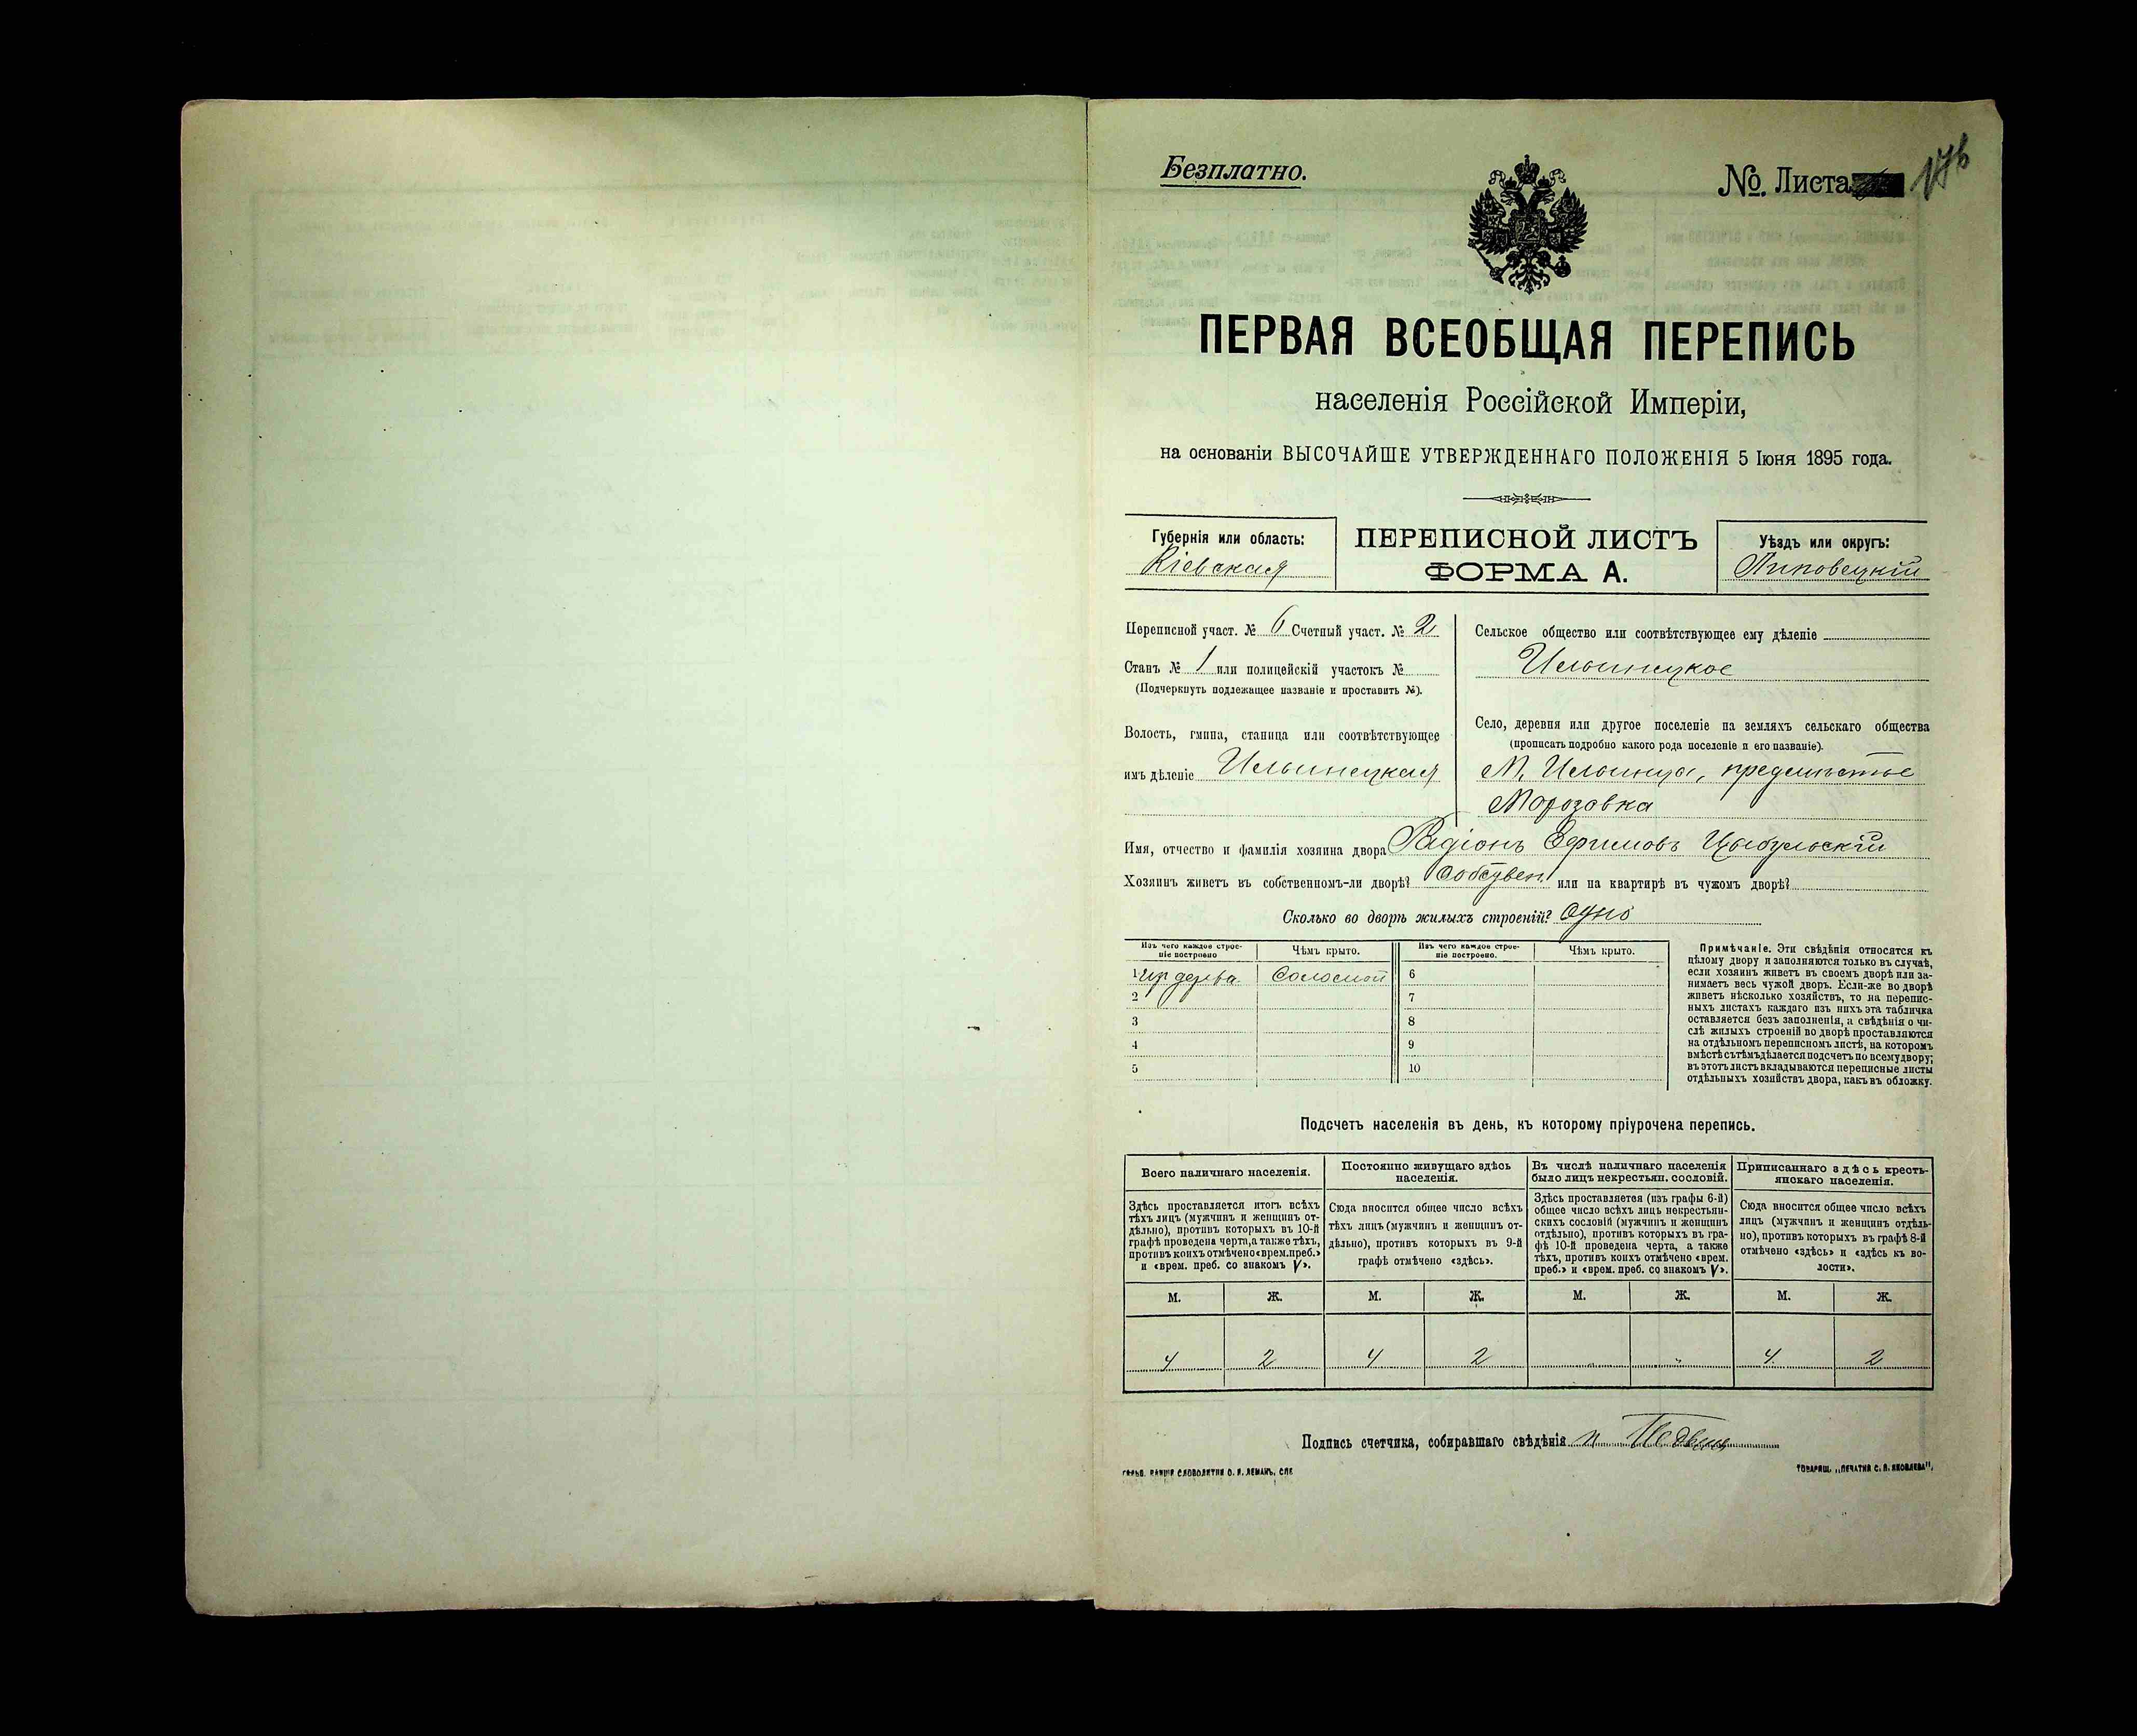 Безплатно.
№. Листа 176
ПЕРВАЯ ВСЕОБЩАЯ ПЕРЕПИСЬ
населенія Россійской Имперіи,
на основаніи ВЫСОЧАЙШЕ УТВЕРЖДЕННАГО ПОЛОЖЕНІЯ 5 Іюня 1895 года.
Губернія или область:
Кіевская
ПЕРЕПИСНОЙ ЛИСТЪ
ФОРМА А.
Уѣздъ или округъ:
Липовецкій
Переписной участ. № 6 Счетный участ. № 2
Станъ № 1 или полицейскій участокъ №
(Подчеркнуть подлежащее названіе и проставить №).
Волость, гмина, станица или соотвѣтствующее
имъ дѣленіе Ильинецкая
Сельское общество или соотвѣтствующее ему дѣленіе
Ильинецкое
Село, деревня или другое поселеніе на земляхъ сельскаго общества
(прописать подробно какого рода поселеніе и его названіе).
М. Ильинцы, предмѣстье
Морозовка
Имя, отчество и фамилія хозяина двора Радіонъ Ефимовъ Цыбульскій
Хозяинъ живетъ въ собственномъ-ли дворѣ? Собствен. или на квартирѣ въ чужомъ дворѣ?
Сколько во дворѣ жилыхъ строеній? одно
Изъ чего каждое строе-
ніе построено
Чѣмъ крыто.
Изъ чего каждое строе-
ніе построено.
Чѣмъ крыто.
1 Изъ дерева Соломой 6
2 7
3 8
4 9
5 10
Примѣчаніе. Эти свѣдѣнія относятся къ
цѣлому двору и заполняются только въ случаѣ,
если хозяинъ живетъ въ своемъ дворѣ или за-
нимаетъ весь чужой дворъ. Если-же во дворѣ
живетъ нѣсколько хозяйствъ, то на перепис-
ныхъ листахъ каждаго изъ нихъ эта табличка
оставляется безъ заполненія, а свѣдѣнія о чи-
слѣ жилыхъ строеній во дворѣ проставляются
на отдѣльномъ переписномъ листѣ, на которомъ
вмѣстѣ съ тѣмъ дѣлается подсчетъ по всему двору;
въ этотъ листъ вкладываются переписные листы
отдѣльныхъ хозяйствъ двора, какъ въ обложку.
Подсчетъ населенія въ день, къ которому пріурочена перепись.
Всего наличнаго населенія.
Здѣсь проставляется итогъ всѣхъ
тѣхъ лицъ (мужчинъ и женщинъ от-
дѣльно), противъ которыхъ въ 10-й
графѣ проведена черта, а также тѣхъ,
противъ коихъ отмѣчено «врем. преб.»
и «врем. преб. со знакомъ V».
Постоянно живущаго здѣсь
населенія.
Сюда вносится общее число всѣхъ
тѣхъ лицъ (мужчинъ и женщинъ от-
дѣльно), противъ которыхъ въ 9-й
графѣ отмѣчено «здѣсь».
Въ числѣ наличнаго населенія
было лицъ некрестьян. сословій.
Здѣсь проставляется (изъ графы 6-й)
общее число всѣхъ лицъ некрестьян-
скихъ сословій (мужчинъ и женщинъ
отдѣльно), противъ которыхъ въ гра-
фѣ 10-й проведена черта, а также
тѣхъ, противъ коихъ отмѣчено «врем.
преб.» и «врем. преб. со знакомъ V».
Приписаннаго здѣсь кресть-
янскаго населенія.
Сюда вносится общее число всѣхъ
лицъ (мужчинъ и женщинъ отдѣль-
но), противъ которыхъ въ графѣ 8-й
отмѣчено «здѣсь» и «здѣсь къ во-
лости».
М. Ж. М. Ж. М. Ж. М. Ж.
4 2 4 2 " " 4 2
Подпись счетчика, собиравшаго свѣдѣнія
СЛОВОЛИТНЯ О. И. ЛЕМАНЪ, СПБ
ТОВАРИЩ. „ПЕЧАТНЯ С. П. ЯКОВЛЕВА".